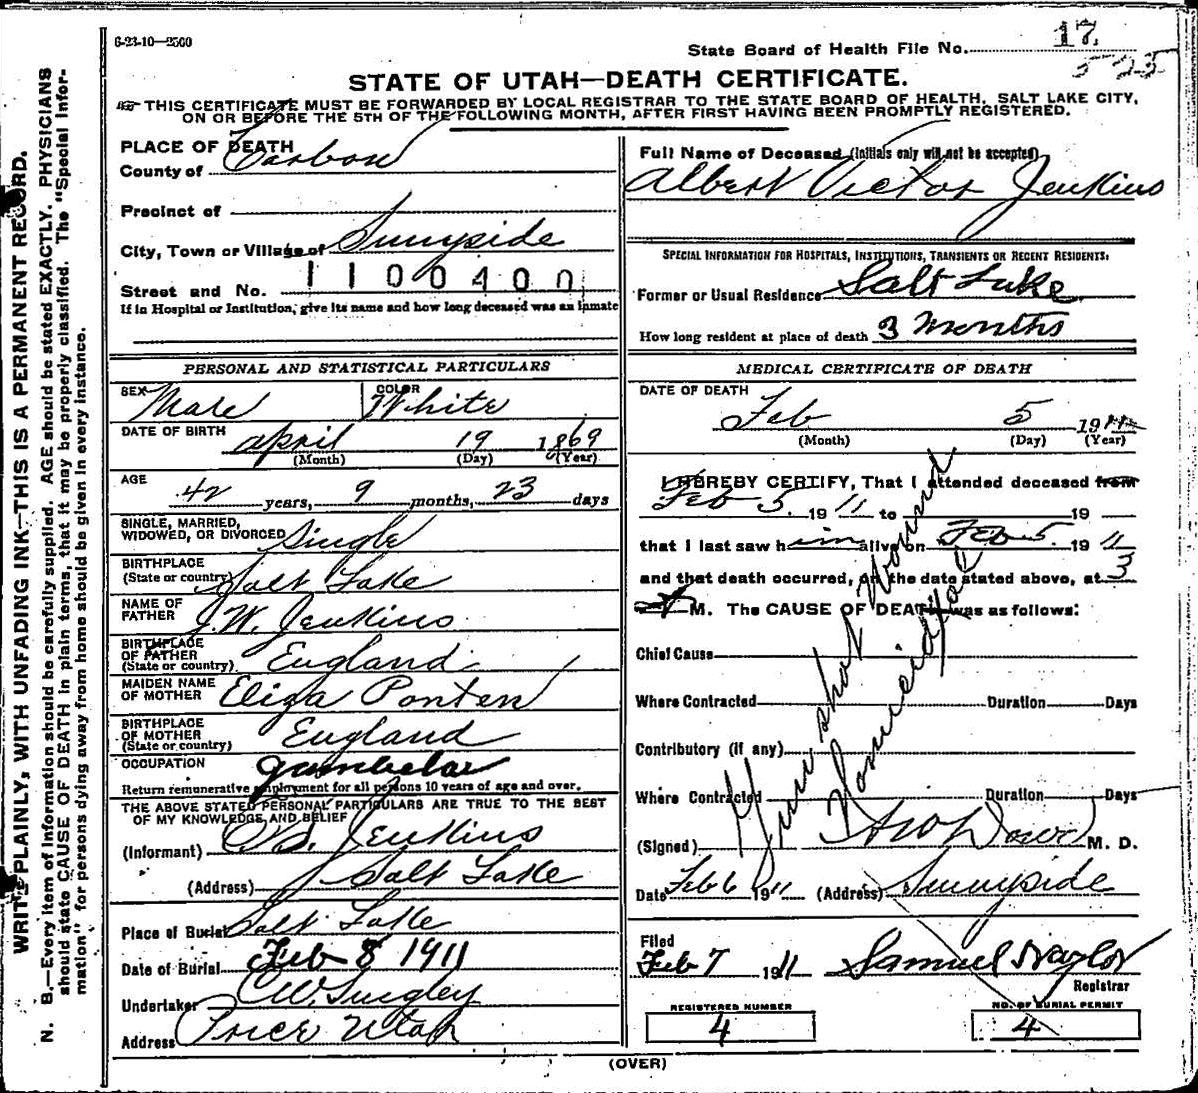 6-23-10—2500
State Board of Health File No. 17
525
STATE OF UTAH—DEATH CERTIFICATE.
THIS CERTIFICATE MUST BE FORWARDED BY LOCAL REGISTRAR TO THE STATE BOARD OF HEALTH, SALT LAKE CITY,
ON OR BEFORE THE 5TH OF THE FOLLOWING MONTH, AFTER FIRST HAVING BEEN PROMPTLY REGISTERED.
WRITE PLAINLY, WITH UNFADING INK—THIS IS A PERMANENT RECORD.
N. B.—Every item of information should be carefully supplied. AGE should be stated EXACTLY. PHYSICIANS
should state CAUSE OF DEATH in plain terms, that it may be properly classified. The "Special Infor-
mation" for persons dying away from home should be given in every instance.
PLACE OF DEATH
County of Carbon
Precinct of
City, Town or Village of Sunnyside
1100400
Street and No.
If in Hospital or Institution, give its name and how long deceased was an inmate
PERSONAL AND STATISTICAL PARTICULARS
SEX Male COLOR White
DATE OF BIRTH April 19 1869
(Month) (Day) (Year)
AGE 42 years, 9 months, 23 days
SINGLE, MARRIED,
WIDOWED, OR DIVORCED Single
BIRTHPLACE
(State or country) Salt Lake
NAME OF
FATHER J. W. Jenkins
BIRTHPLACE
OF FATHER
(State or country) England
MAIDEN NAME
OF MOTHER Eliza Ponten
BIRTHPLACE
OF MOTHER
(State or country) England
OCCUPATION gambelar
Return remunerative employment for all persons 10 years of age and over.
THE ABOVE STATED PERSONAL PARTICULARS ARE TRUE TO THE BEST
OF MY KNOWLEDGE AND BELIEF
(Informant) Jenkins
(Address) Salt Lake
Place of Burial Salt Lake
Date of Burial Feb 8 1911
Undertaker
Address Price Utah
Full Name of Deceased (Initials only will not be accepted)
Albert Victor Jenkins
SPECIAL INFORMATION FOR HOSPITALS, INSTITUTIONS, TRANSIENTS OR RECENT RESIDENTS:
Former or Usual Residence Salt Lake
How long resident at place of death 3 months
MEDICAL CERTIFICATE OF DEATH
DATE OF DEATH
Feb 5 1911
(Month) (Day) (Year)
I HEREBY CERTIFY, That I attended deceased from
Feb 5. 1911 to 19
that I last saw him alive on Feb 5. 1911
and that death occurred, on the date stated above, at 3
M. The CAUSE OF DEATH was as follows:
Gun shot Wound
Homicidal
Chief Cause
Where Contracted Duration Days
Contributory (if any)
Where Contracted Duration Days
(Signed) Dowd M. D.
Date Feb 6 1911 (Address) Sunnyside
Filed
Feb 7 1911 Samuel Naylor
Registrar
REGISTERED NUMBER
4
NO. OF BURIAL PERMIT
4
(OVER)